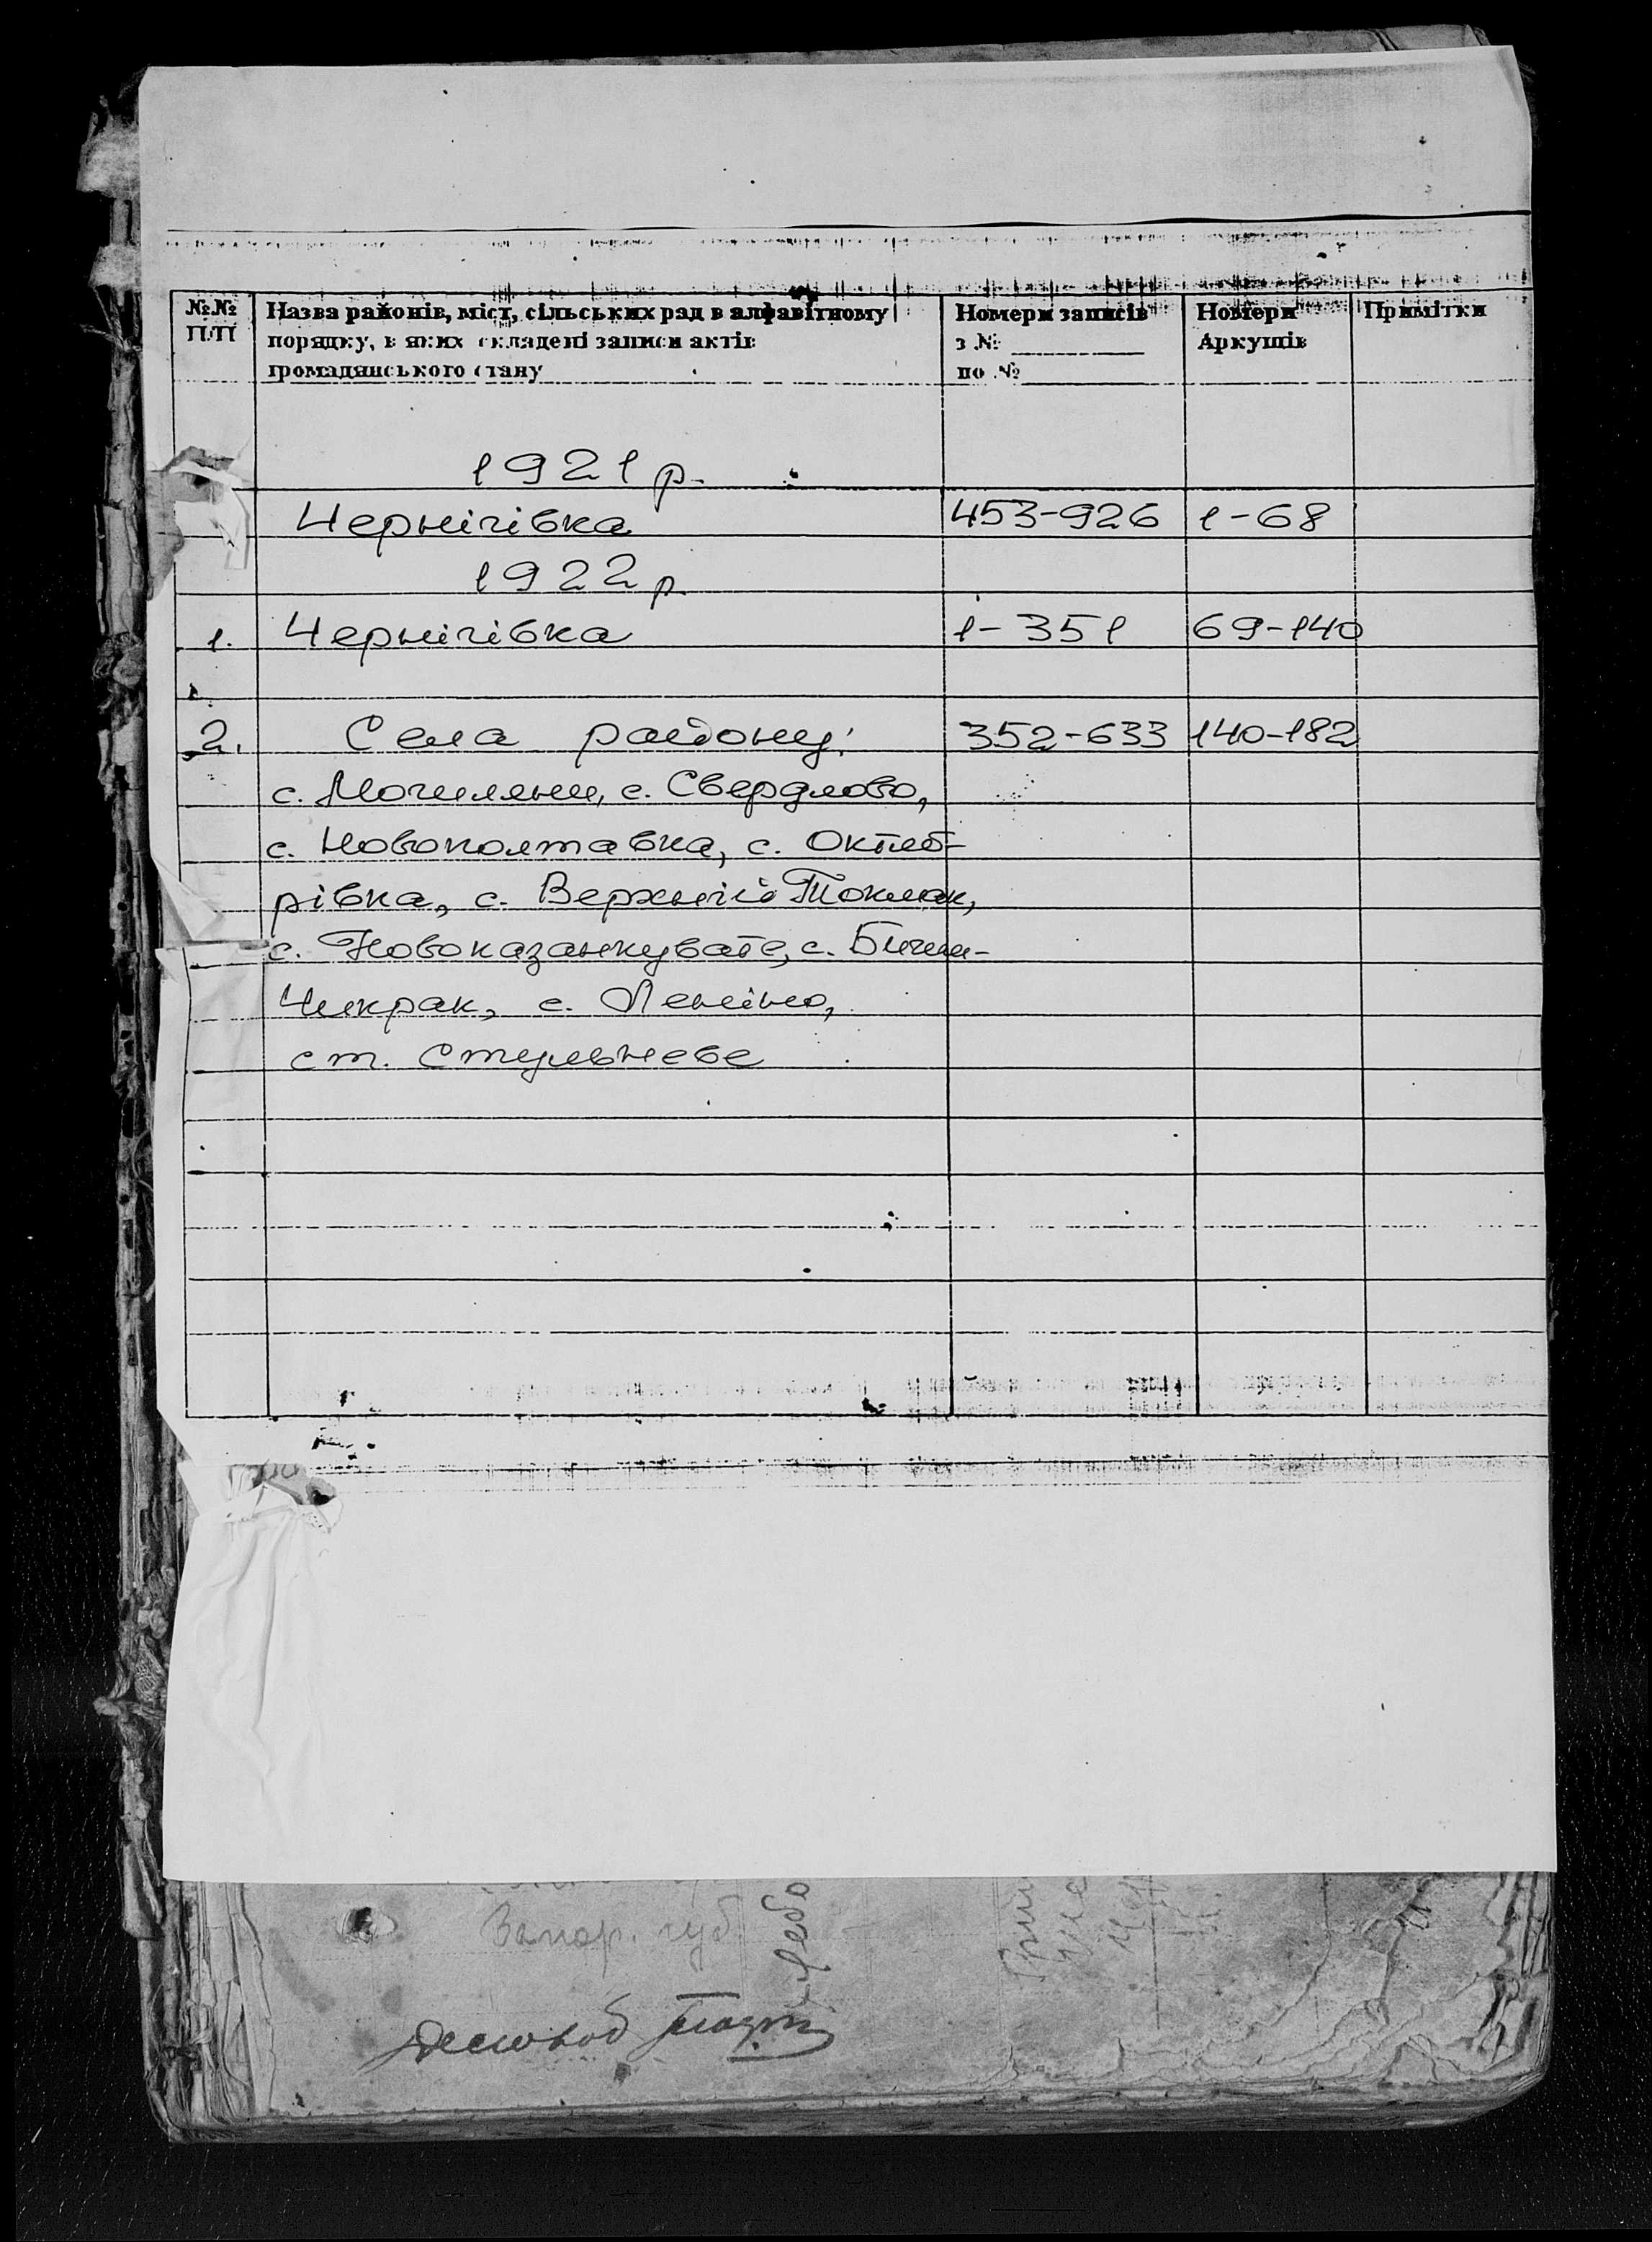 №№ П/П Назва районів, міст, сільських рад в алфавітному порядку, в яких складені записи актів громадянського стану Номери записів з № по № Номери Аркушів Примітки
1921 р.
Чернігівка 453-926 1-68
1922 р.
1. Чернігівка 1-351 69-140
2. Села району: 352-633 140-182
с. Могиляни, с. Свердлово,
с. Новополтавка, с. Октяб-
рівка, с. Верхній Токмак,
с. Новоказанкувате, с. Бігим-
Чикрак, с. Леніно,
ст. Стульнєве
Запор. губ.